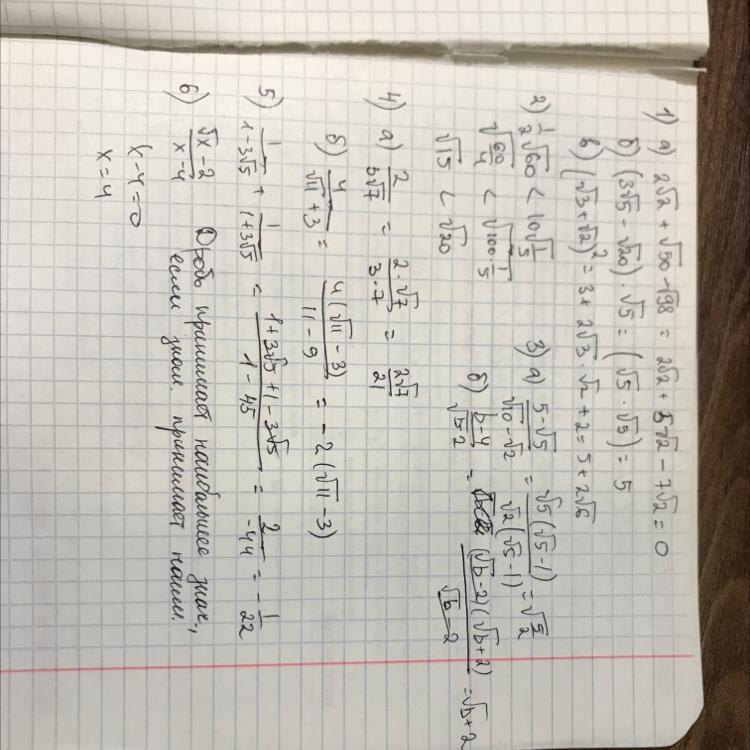 1) а) 2√2 + √50 - √98 = 2√2 + 5√2 - 7√2 = 0
б) (3√5 - √20) · √5 = (√5 · √5) = 5
в) (√3 + √2)² = 3 + 2√3 · √2 + 2 = 5 + 2√6
2) 1/2 √60 < 10√(1/5)
√(60/4) < √(100 · 1/5)
√15 < √20
3) а) (5 - √5)/(√10 - √2) = √5(√5 - 1)/√2(√5 - 1) = √(5/2)
б) (b - 4)/(√b - 2) = (√b - 2)(√b + 2)/(√b - 2) = √b + 2
4) а) 2/3√7 = 2 · √7/3 · 7 = 2√7/21
б) 4/(√11 + 3) = 4(√11 - 3)/(11 - 9) = -2(√11 - 3)
5) 1/(1 - 3√5) + 1/(1 + 3√5) = (1 + 3√5 + 1 - 3√5)/(1 - 45) = 2/-44 = -1/22
6) (√x - 2)/(x - 4) Дробь принимает наибольшее знач.,
если знам. принимает наим.
x - 4 = 0
x = 4